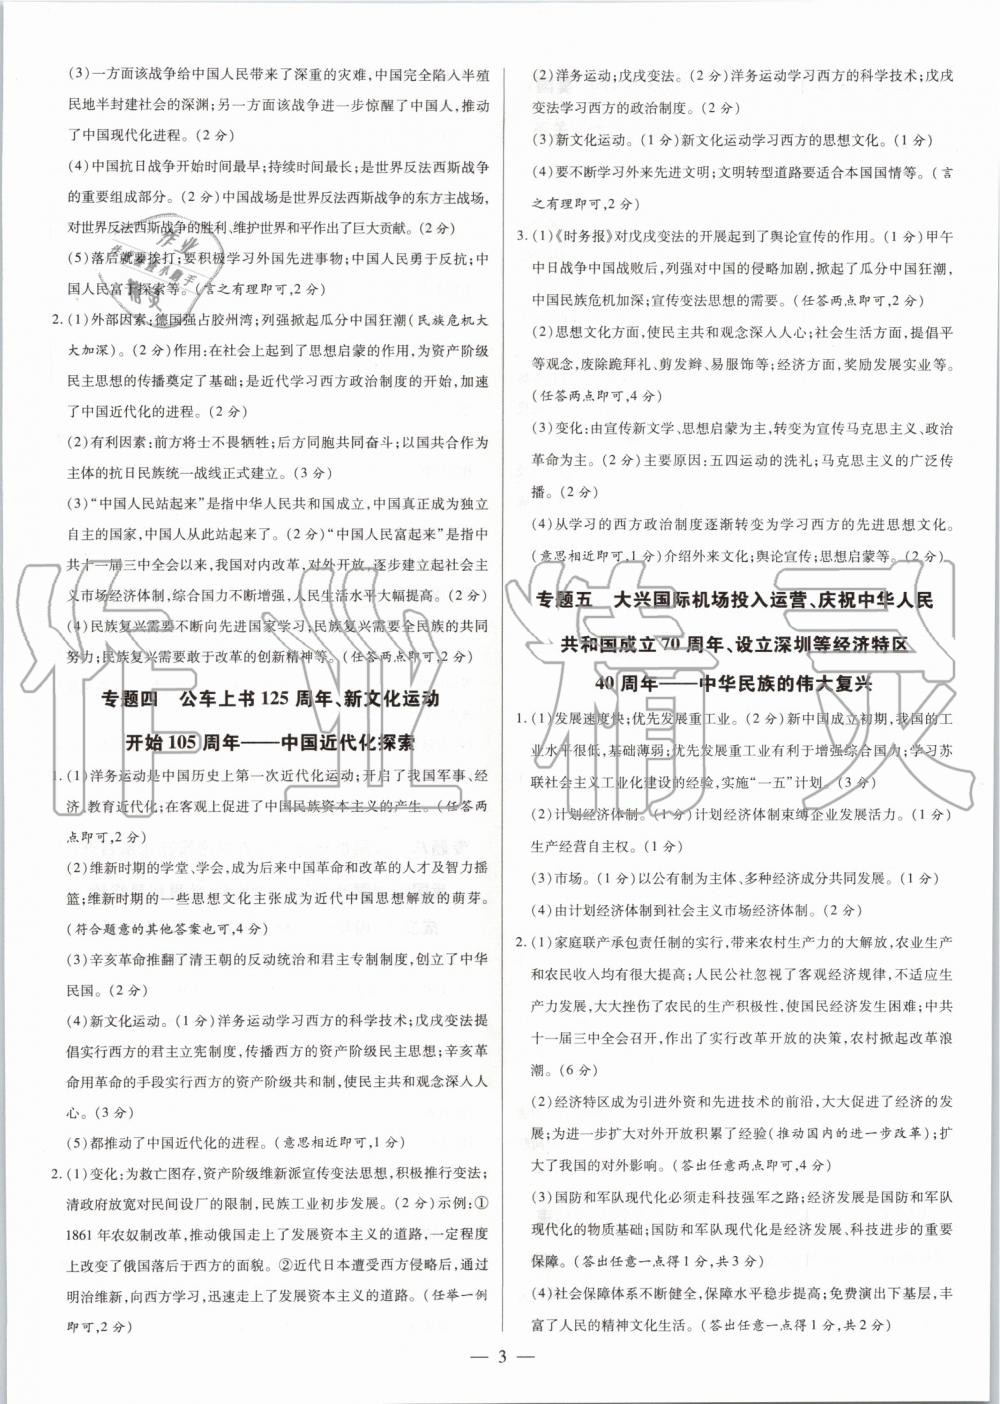 (3)一方面该战争给中国人民带来了深重的灾难,中国完全陷入半殖
民地半封建社会的深渊;另一方面该战争进一步惊醒了中国人,推动
了中国现代化进程。(2 分)
(4)中国抗日战争开始时间最早;持续时间最长;是世界反法西斯战争
的重要组成部分。(2 分)中国战场是世界反法西斯战争的东方主战场,
对世界反法西斯战争的胜利、维护世界和平作出了巨大贡献。(2 分)
(5)落后就要挨打;要积极学习外国先进事物;中国人民勇于反抗;中
国人民富于探索等。(言之有理即可,2 分)
2. (1)外部因素:德国强占胶州湾;列强掀起瓜分中国狂潮(民族危机大
大加深)。(2 分)作用:在社会上起到了思想启蒙的作用,为资产阶级
民主思想的传播奠定了基础;是近代学习西方政治制度的开始,加速
了中国近代化的进程。(2 分)
(2)有利因素:前方将士不畏牺牲;后方同胞共同奋斗;以国共合作为
主体的抗日民族统一战线正式建立。(3 分)
(3)“中国人民站起来”是指中华人民共和国成立,中国真正成为独立
自主的国家,中国人从此站起来了。(2 分)“中国人民富起来”是指中
共十一届三中全会以来,我国对内改革,对外开放,逐步建立起社会主义市场
经济体制,综合国力不断增强,人民生活水平大幅提高。(2 分)
(4)民族复兴需要不断向先进国家学习,民族复兴需要全民族的共同
努力;民族复兴需要敢于改革的创新精神等。(言之有理即可,2 分)
专题四 公车上书 125 周年、新文化运动
开始 105 周年——中国近代化探索
1. (1)洋务运动是中国历史上第一次近代化运动;开启了我国军事、经
济、教育近代化;在客观上促进了中国民族资本主义的产生。(任答两
点即可,2 分)
(2)维新时期的学堂、学会,成为后来中国革命和改革的人才及智力摇
篮;维新时期的一些思想文化主张成为近代中国思想解放的萌芽。
(符合题意的其他答案也可,4 分)
(3)辛亥革命推翻了清王朝的反动统治和君主专制制度,创立了中华
民国。(2 分)
(4)新文化运动。(1 分)洋务运动学习西方的科学技术;戊戌变法提
倡实行西方的君主立宪制度,传播西方的资产阶级民主思想;辛亥革
命用革命的手段实行西方的资产阶级共和制,使民主共和观念深入人
心。(3 分)
(5)都推动了中国近代化的进程。(意思相近即可,1 分)
2. (1)变化:为救亡图存,资产阶级维新派宣传变法思想,积极推行变法;
清政府放宽对民间设厂的限制,民族工业初步发展。(2 分)示例:①
1861 年农奴制改革,推动俄国走上了发展资本主义的道路,一定程度
上改变了俄国落后于西方的面貌。②近代日本遭受西方侵略,通过
明治维新,向西方学习,迅速走上了发展资本主义的道路。(任举一例
即可,2 分)
(2)洋务运动;戊戌变法。(2 分)洋务运动学习西方的科学技术;戊戌
变法学习西方的政治制度。(2 分)
(3)新文化运动。(1 分)新文化运动学习西方的思想文化。(1 分)
(4)要不断学习外来先进文明;文明转型道路要适合本国国情等。(言
之有理即可,2 分)
3. (1)《时务报》对戊戌变法的开展起到了舆论宣传的作用。(1 分)甲午
中日战争中国战败后,列强对中国的侵略加剧,掀起了瓜分中国狂潮,
中国民族危机加深;宣传变法思想的需要。(任答两点即可,2 分)
(2)思想文化方面,使民主共和观念深入人心;社会生活方面,提倡平
等观念,废除跪拜礼、剪发辫、易服饰等;经济方面,奖励发展实业等。
(任答两点即可,4 分)
(3)变化:由宣传新文学、思想启蒙为主,转变为宣传马克思主义、政治
革命为主。(2 分)主要原因:五四运动的洗礼;马克思主义的广泛传
播。(2 分)
(4)从学习的西方政治制度逐渐转变为学习西方的先进思想文化。
(意思相近即可,1 分)介绍外来文化;舆论宣传;思想启蒙等。(2 分)
专题五 大兴国际机场投入运营、庆祝中华人民
共和国成立 70 周年、设立深圳等经济特区
40 周年——中华民族的伟大复兴
1. (1)发展速度快;优先发展重工业。(2 分)新中国成立初期,我国的工
业水平很低,基础薄弱;优先发展重工业有利于增强综合国力;学习苏
联社会主义工业化建设的经验,实施“一五”计划。(3 分)
(2)计划经济体制。(1 分)计划经济体制束缚企业发展活力。(1 分)
生产经营自主权。(1 分)
(3)市场。(1 分)以公有制为主体、多种经济成分共同发展。(1 分)
(4)由计划经济体制到社会主义市场经济体制。(2 分)
2. (1)家庭联产承包责任制的实行,带来农村生产力的大解放,农业生产
和农民收入均有很大提高;人民公社忽视了客观经济规律,不适应生
产力发展,大大挫伤了农民的生产积极性,使国民经济发生困难;中共
十一届三中全会召开,作出了实行改革开放的决策,农村掀起改革浪
潮。(6 分)
(2)经济特区成为引进外资和先进技术的前沿,大大促进了经济的发
展;为进一步扩大对外开放积累了经验(推动国内的进一步改革);扩
大了我国的对外影响。(答出任意两点即可,2 分)
(3)国防和军队现代化必须走科技强军之路;经济发展是国防和军队
现代化的物质基础;国防和军队现代化是经济发展、科技进步的重要
保障。(答出任意一点得 1 分,共 3 分)
(4)社会保障体系不断健全,保障水平稳步提高;免费演出下基层,丰
富了人民的精神文化生活。(答出任意一点得 1 分,共 2 分)
— 3 —
作业精灵